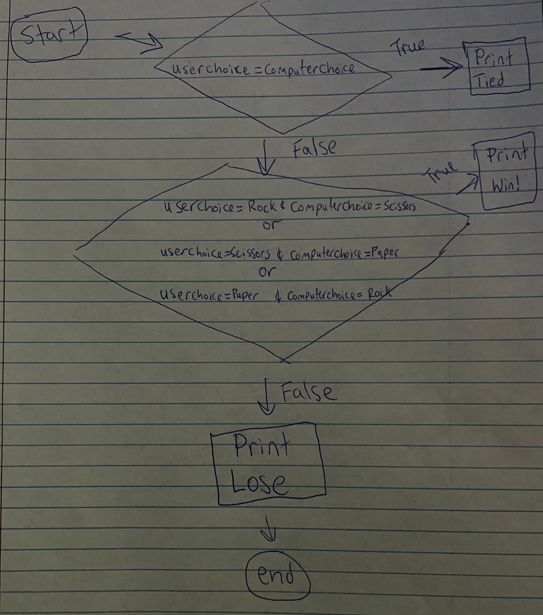 Start
userchoice = Computerchoice
True
Print
Tied
False
True
Print
Win!
userchoice = Rock & Computerchoice = Scissors
or
userchoice = Scissors & Computerchoice = Paper
or
userchoice = Paper & Computerchoice = Rock
False
Print
Lose
end